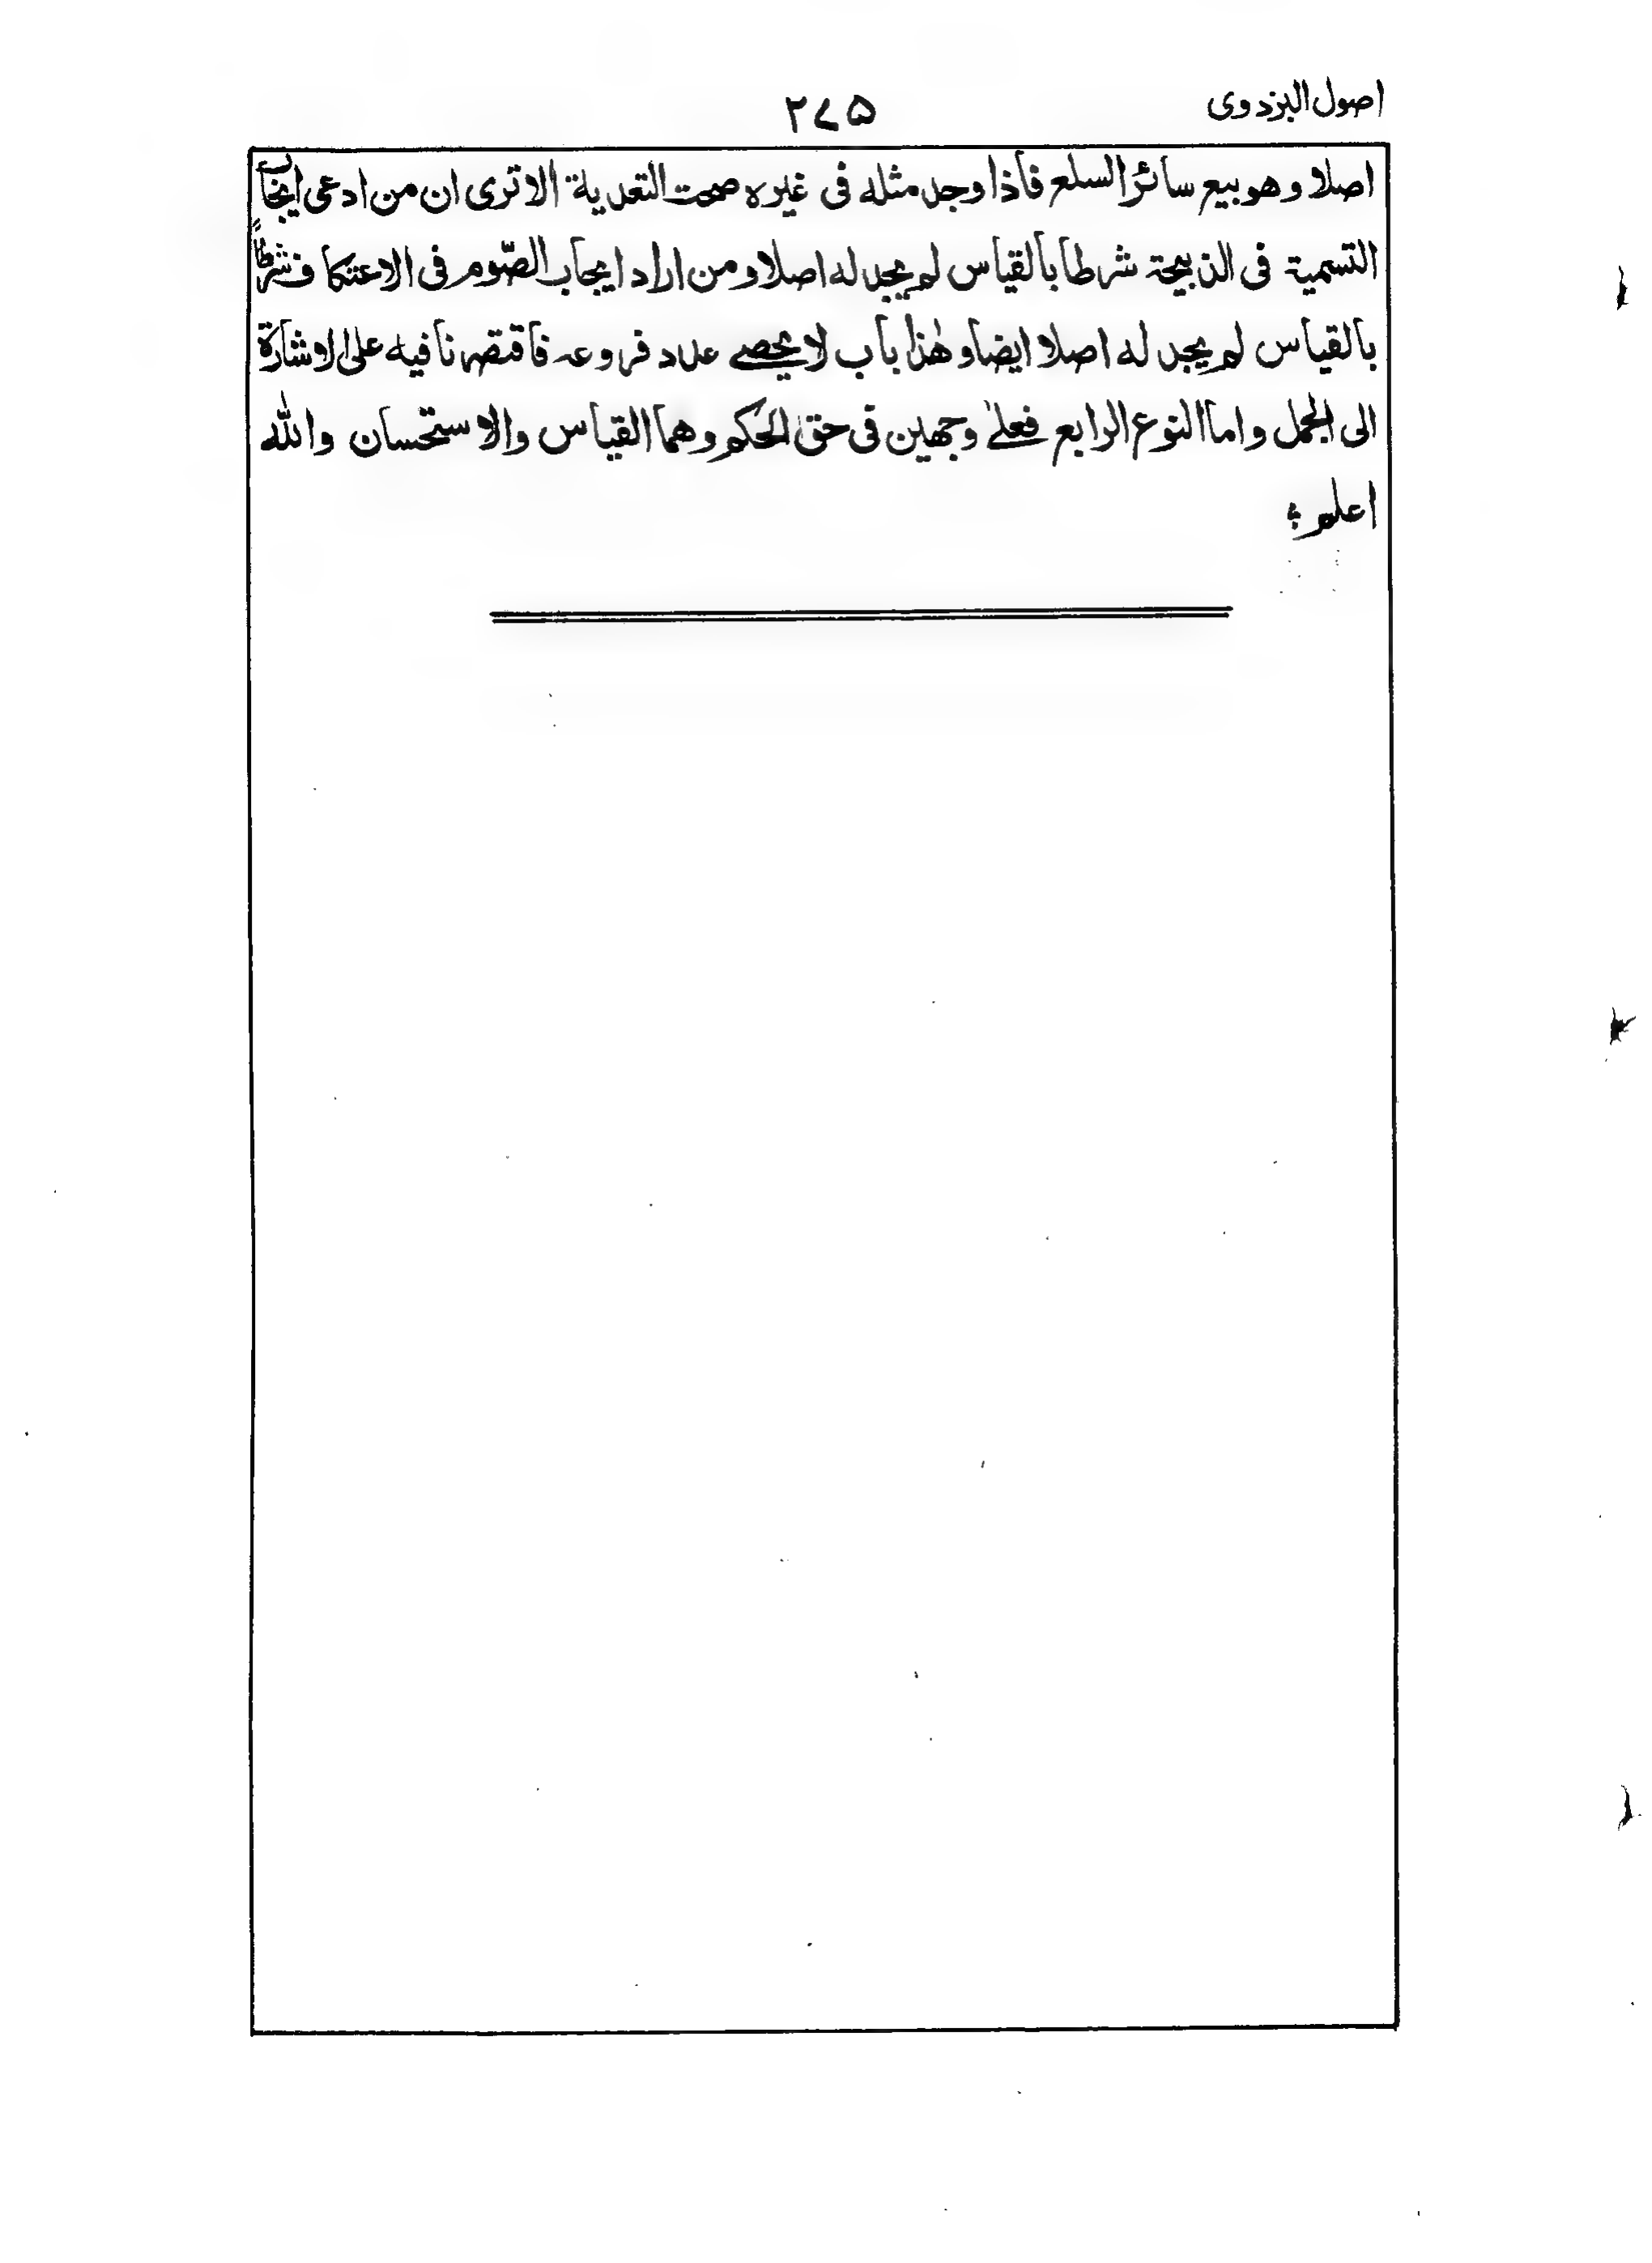 اصول البزدوی
۲۷۵
اصلا وهو بيع سائر السلع فاذا وجد مثله فى غيره صحت التعدية الا ترى ان من ادعى ايجاب
التسمية فى الذبيحة شرطا بالقياس لم يجد له اصلا ومن اراد ايجاب الصّوم فى الاعتكاف شرطاً
بالقياس لم يجد له اصلا ايضا وهٰذا باب لا يحصے عدد فروعه فاقتصرنا فيه على الاشارة
الى الجمل واما النوع الرابع فعلےٰ وجهين فى حق الحكم وهما القياس والاستحسان والله
اعلم ؛